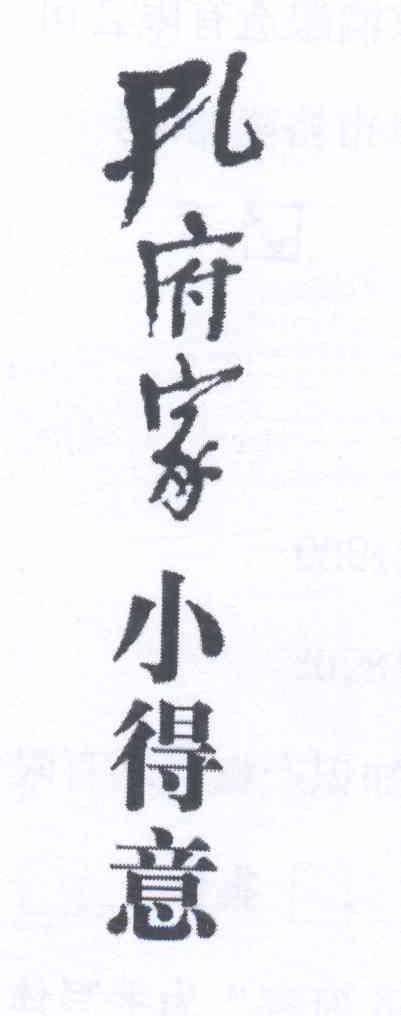 孔府家
小得意